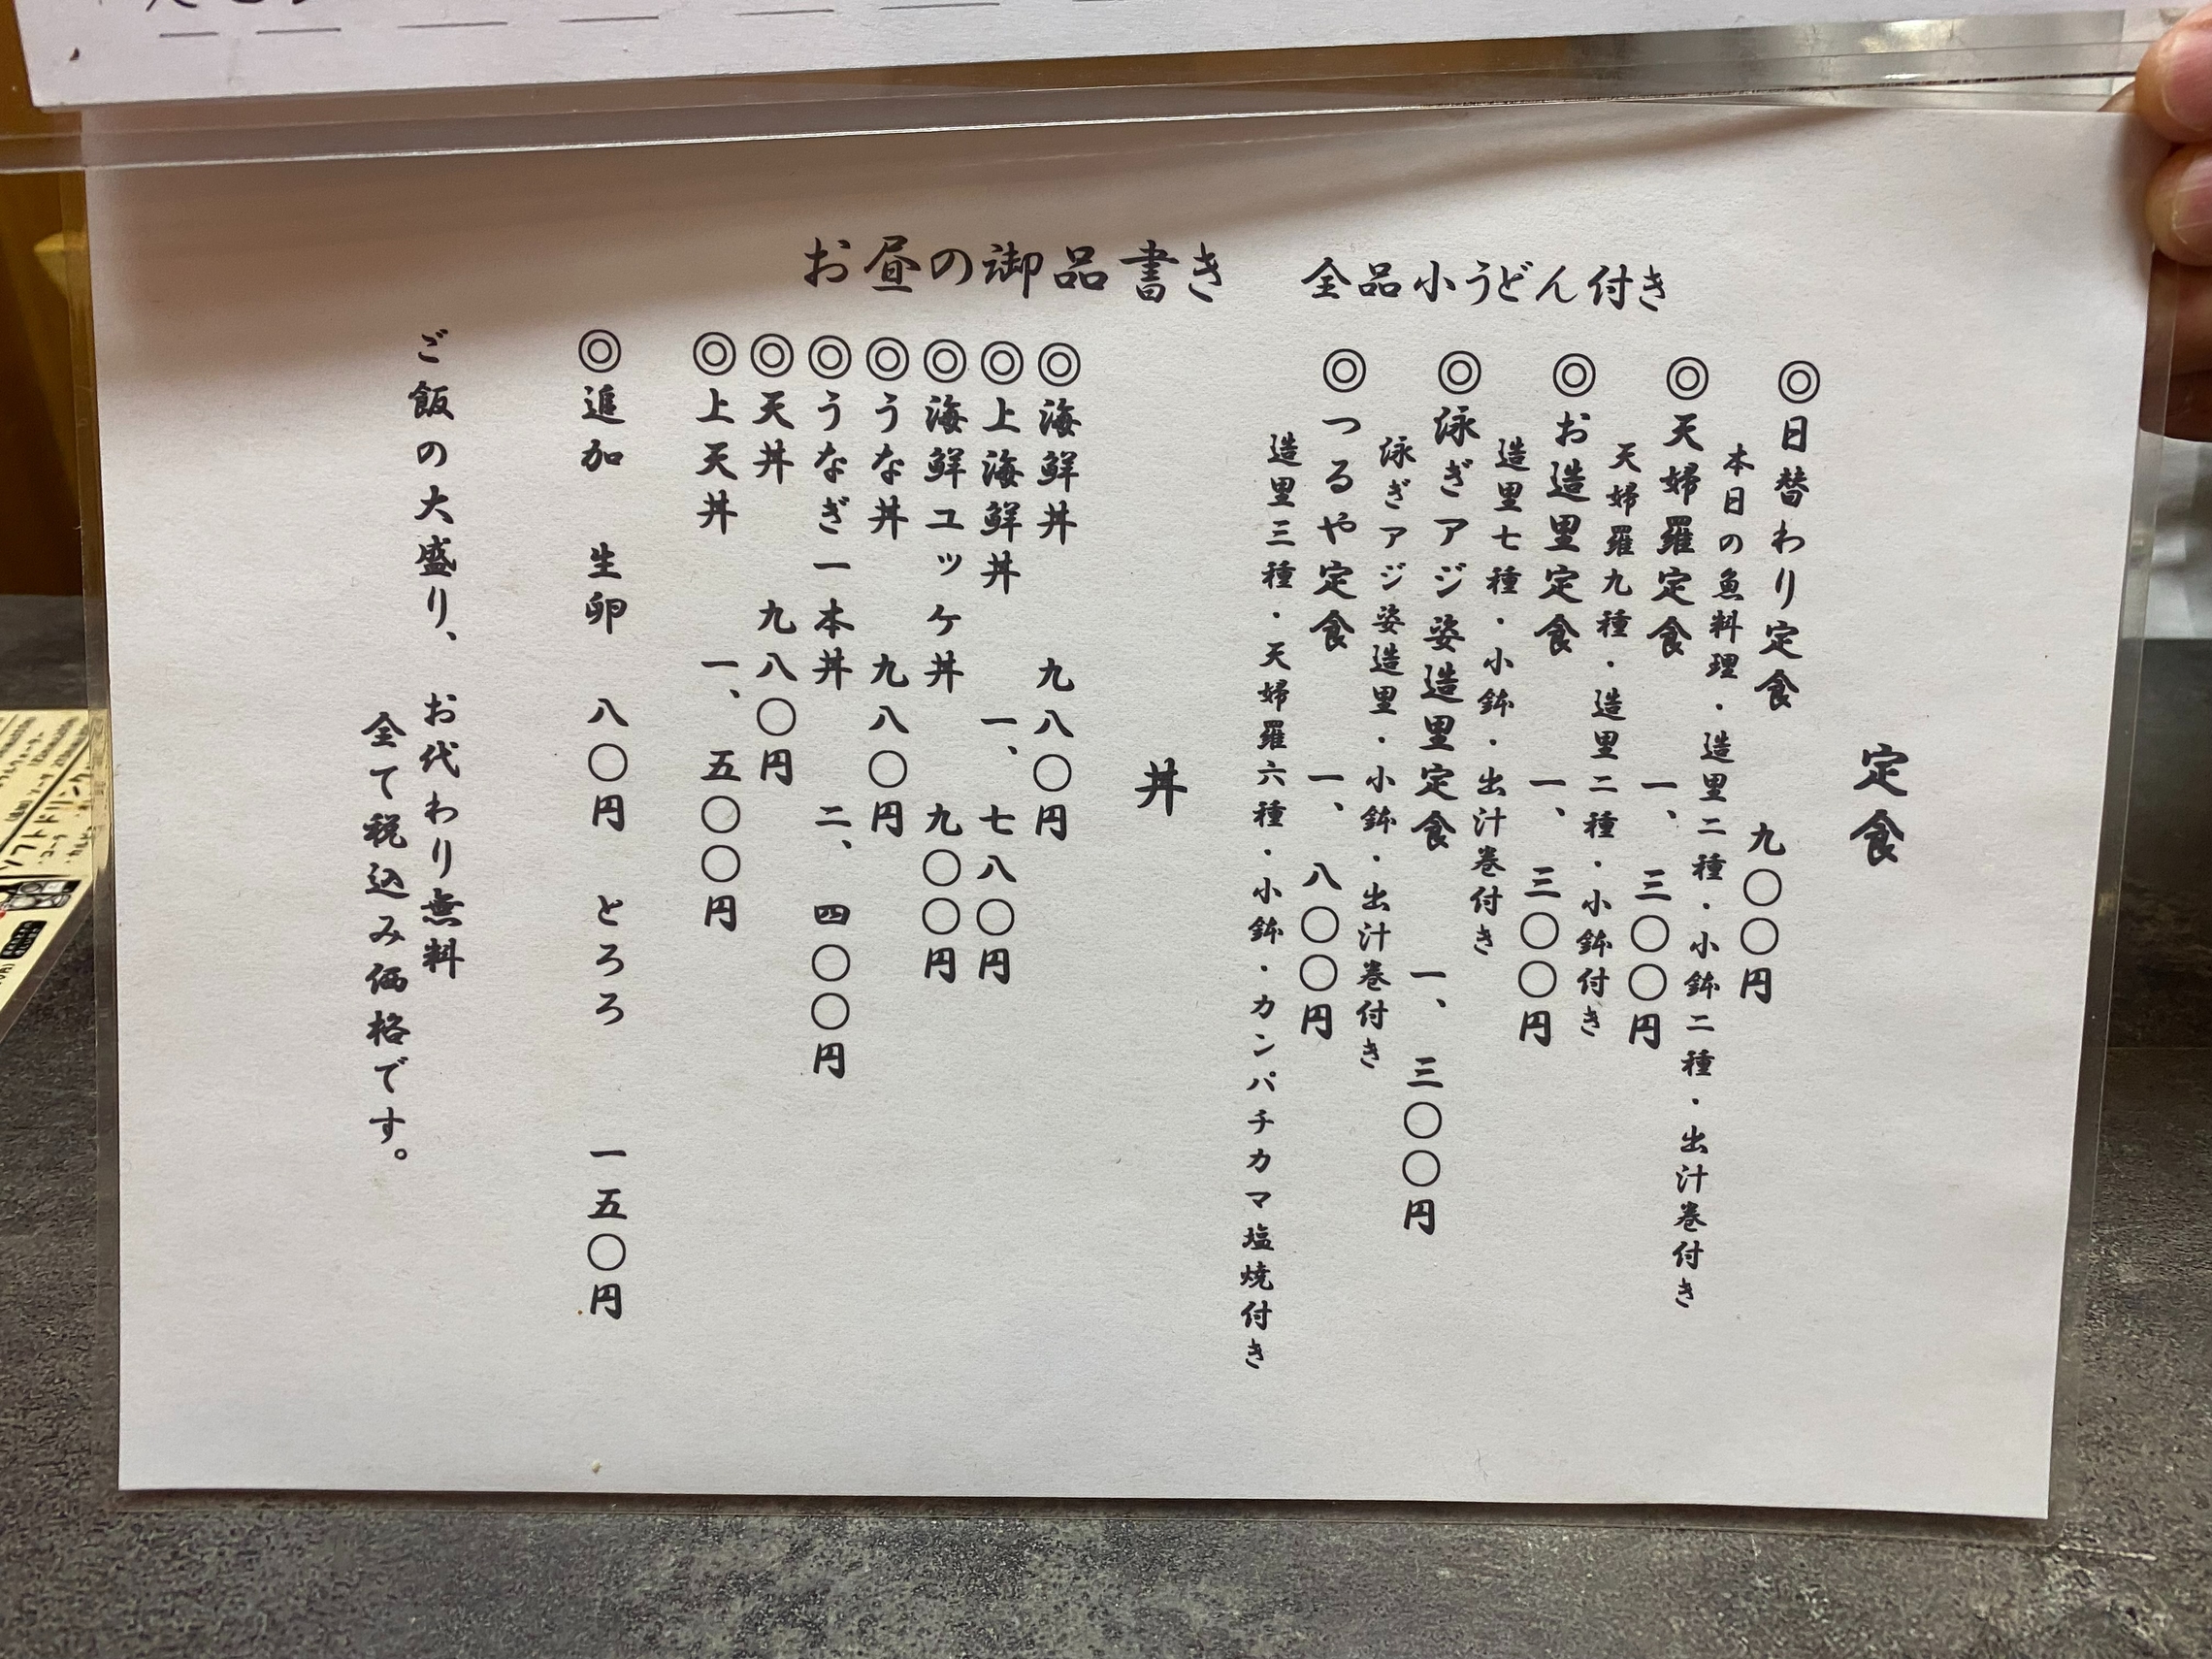 お昼の御品書き　全品小うどん付き
定食
◎日替わり定食　九〇〇円
本日の魚料理・造里二種・小鉢二種・出汁巻付き
◎天婦羅定食　一、三〇〇円
天婦羅九種・造里二種・小鉢付き
◎お造里定食　一、三〇〇円
造里七種・小鉢・出汁巻付き
◎泳ぎアジ姿造里定食　一、三〇〇円
泳ぎアジ姿造里・小鉢・出汁巻付き
◎つるや定食　一、八〇〇円
造里三種・天婦羅六種・小鉢・カンパチカマ塩焼付き
丼
◎海鮮丼　九八〇円
◎上海鮮丼　一、七八〇円
◎海鮮ユッケ丼　九〇〇円
◎うな丼　九八〇円
◎うなぎ一本丼　二、四〇〇円
◎天丼　九八〇円
◎上天丼　一、五〇〇円
◎追加　生卵　八〇円　とろろ　一五〇円
ご飯の大盛り、お代わり無料
全て税込み価格です。